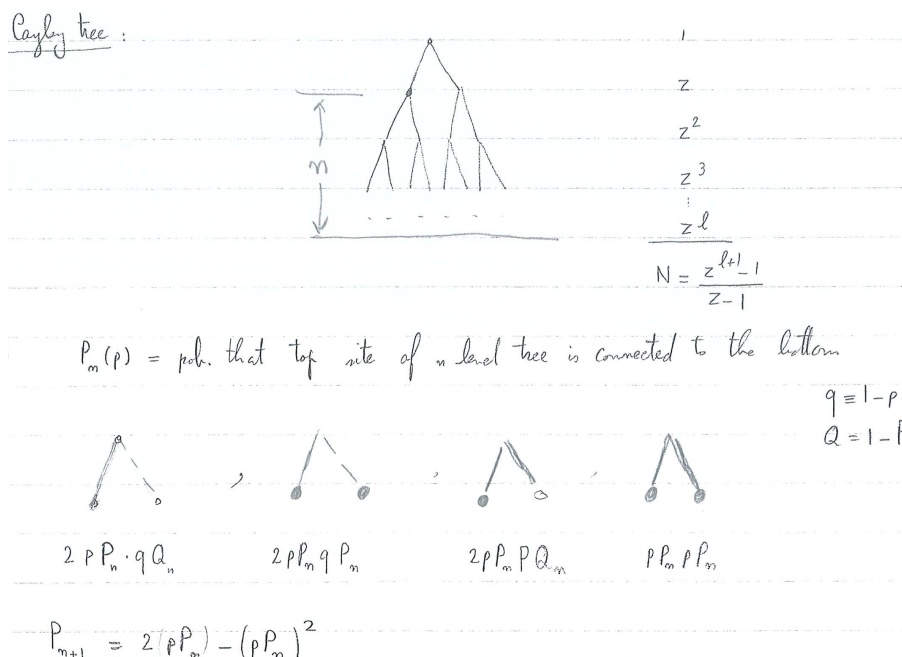 Cayley tree :
1
z
z²
n
z³
⋮
z^l
N = (z^{l+1} - 1)/(z - 1)
P_n(p) = prob. that top site of n level tree is connected to the bottom
q ≡ 1-p
Q = 1-P
2 p P_n · q Q_n
2 p P_n q P_n
2 p P_n p Q_n
p P_n p P_n
P_{n+1} = 2(p P_n) - (p P_n)²